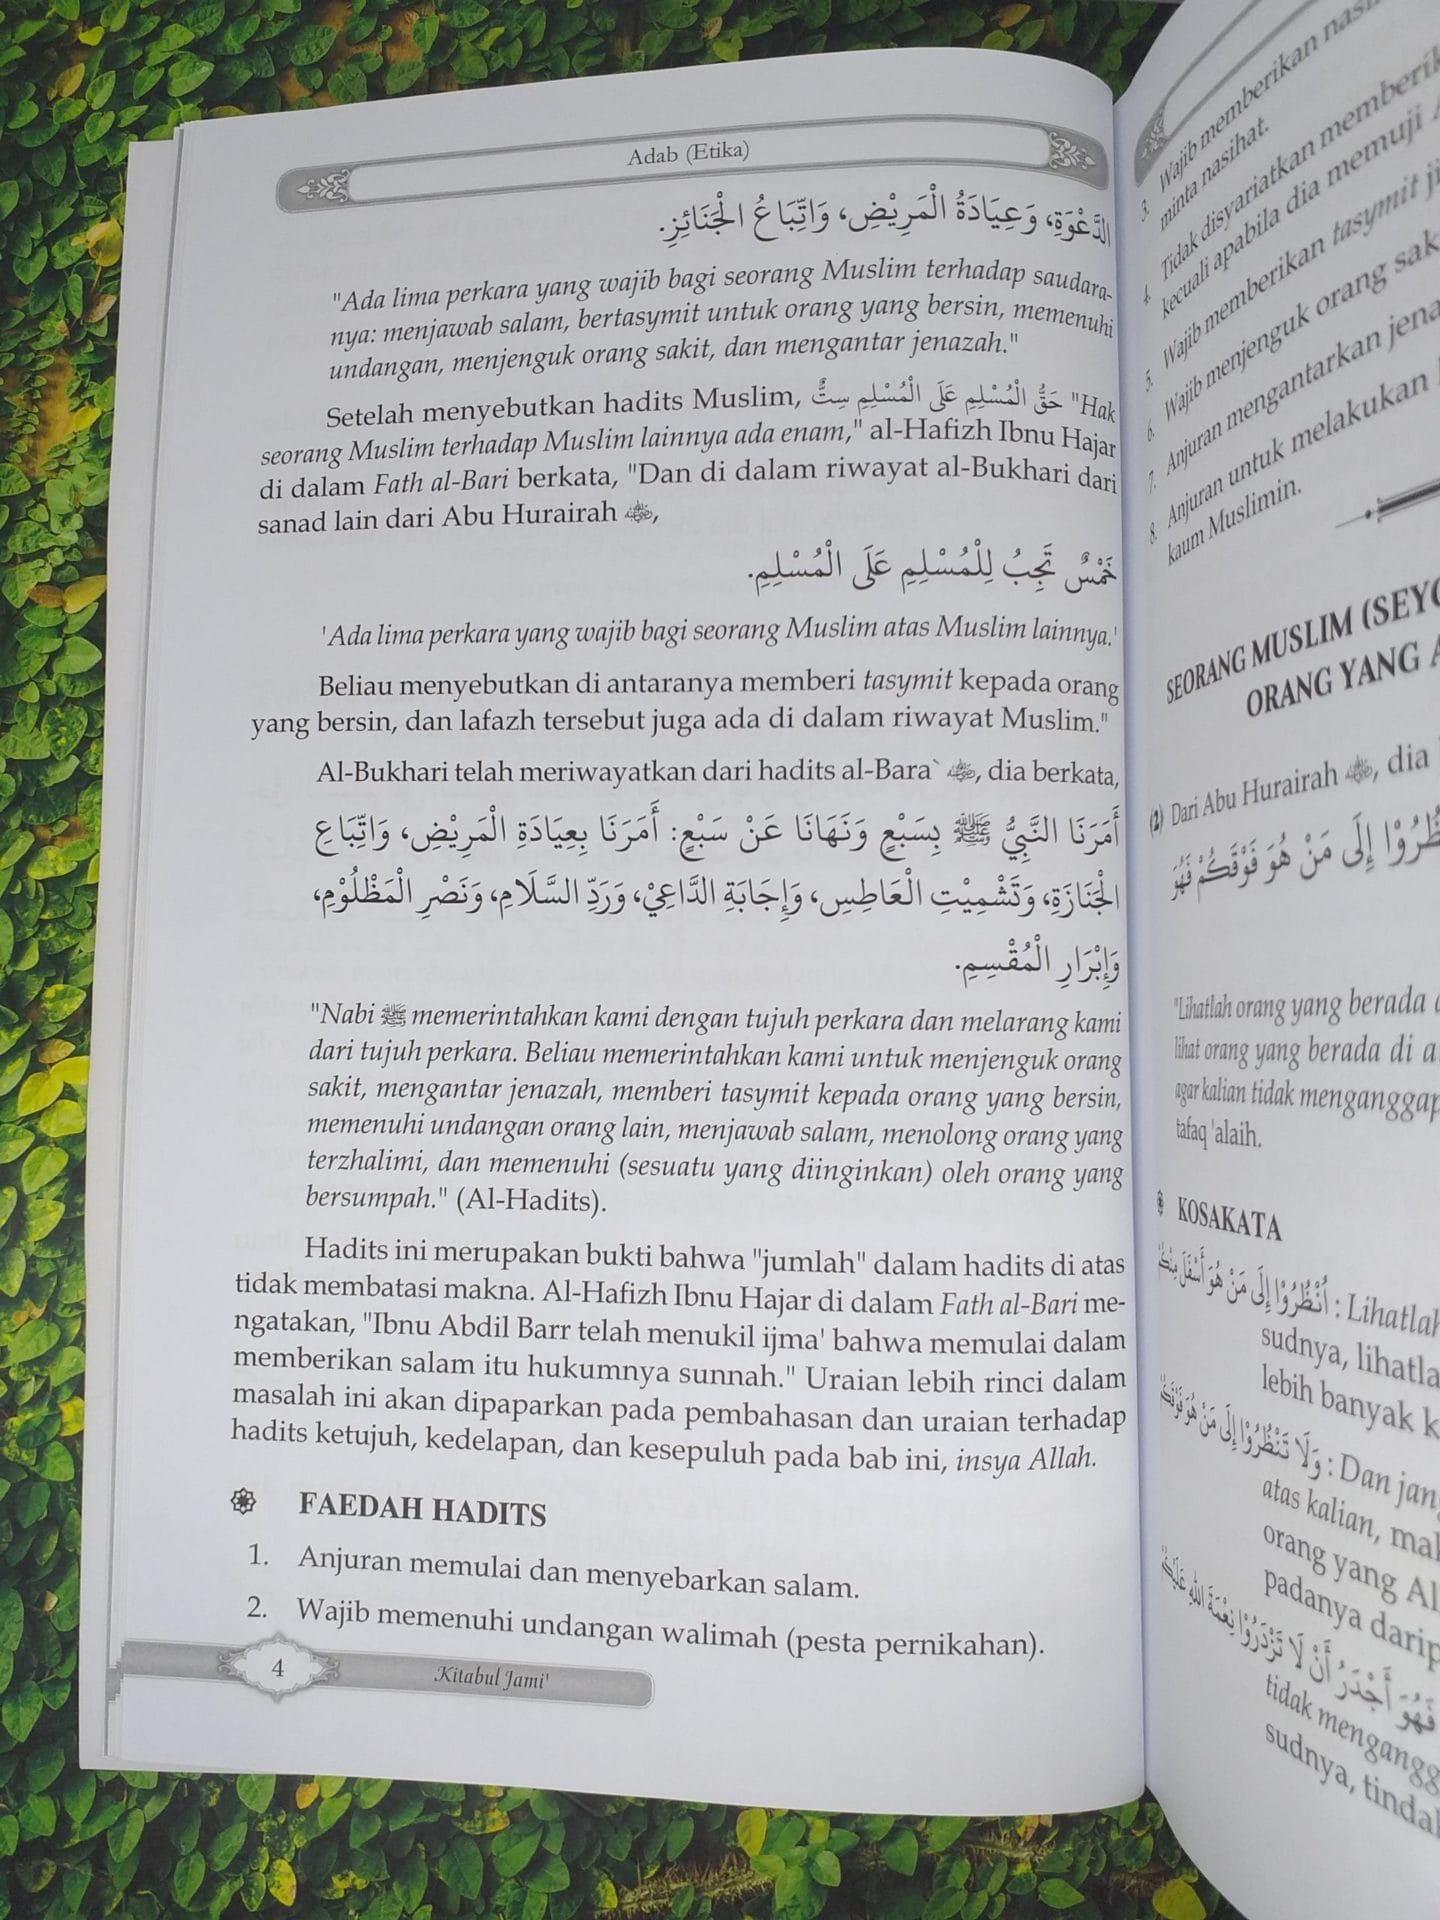 Adab (Etika)
الدَّعْوَةِ، وَعِيَادَةُ الْمَرِيْضِ، وَاتِّبَاعُ الْجَنَائِزِ.
"Ada lima perkara yang wajib bagi seorang Muslim terhadap saudara-
nya: menjawab salam, bertasymit untuk orang yang bersin, memenuhi
undangan, menjenguk orang sakit, dan mengantar jenazah."
Setelah menyebutkan hadits Muslim, حَقُّ الْمُسْلِمِ عَلَى الْمُسْلِمِ سِتٌّ "Hak
seorang Muslim terhadap Muslim lainnya ada enam," al-Hafizh Ibnu Hajar
di dalam Fath al-Bari berkata, "Dan di dalam riwayat al-Bukhari dari
sanad lain dari Abu Hurairah ﷺ,
خَمْسٌ تَجِبُ لِلْمُسْلِمِ عَلَى الْمُسْلِمِ.
'Ada lima perkara yang wajib bagi seorang Muslim atas Muslim lainnya.'
Beliau menyebutkan di antaranya memberi tasymit kepada orang
yang bersin, dan lafazh tersebut juga ada di dalam riwayat Muslim."
Al-Bukhari telah meriwayatkan dari hadits al-Bara` , dia berkata,
أَمَرَنَا النَّبِيُّ ﷺ بِسَبْعٍ وَنَهَانَا عَنْ سَبْعٍ: أَمَرَنَا بِعِيَادَةِ الْمَرِيْضِ، وَاتِّبَاعِ
الْجَنَازَةِ، وَتَشْمِيْتِ الْعَاطِسِ، وَإِجَابَةِ الدَّاعِيْ، وَرَدِّ السَّلَامِ، وَنَصْرِ الْمَظْلُوْمِ،
وَإِبْرَارِ الْمُقْسِمِ.
"Nabi ﷺ memerintahkan kami dengan tujuh perkara dan melarang kami
dari tujuh perkara. Beliau memerintahkan kami untuk menjenguk orang
sakit, mengantar jenazah, memberi tasymit kepada orang yang bersin,
memenuhi undangan orang lain, menjawab salam, menolong orang yang
terzhalimi, dan memenuhi (sesuatu yang diinginkan) oleh orang yang
bersumpah." (Al-Hadits).
Hadits ini merupakan bukti bahwa "jumlah" dalam hadits di atas
tidak membatasi makna. Al-Hafizh Ibnu Hajar di dalam Fath al-Bari me-
ngatakan, "Ibnu Abdil Barr telah menukil ijma' bahwa memulai dalam
memberikan salam itu hukumnya sunnah." Uraian lebih rinci dalam
masalah ini akan dipaparkan pada pembahasan dan uraian terhadap
hadits ketujuh, kedelapan, dan kesepuluh pada bab ini, insya Allah.
FAEDAH HADITS
1. Anjuran memulai dan menyebarkan salam.
2. Wajib memenuhi undangan walimah (pesta pernikahan).
4 Kitabul Jami'
3. Wajib memberikan
minta nasihat.
4. Tidak disyariatkan
kecuali apabila dia memuji
5. Wajib memberikan tasymit
6. Wajib menjenguk orang
7. Anjuran mengantarkan
8. Anjuran untuk melakukan
kaum Muslimin.
SEORANG MUSLIM
ORANG YANG
(2) Dari Abu Hurairah , dia
إِلَى مَنْ هُوَ فَوْقَكُمْ فَهُوَ
"Lihatlah orang yang berada
lihat orang yang berada di
agar kalian tidak
tafaq 'alaih.
KOSAKATA
أُنْظُرُوْا إِلَى مَنْ هُوَ أَسْفَلَ مِنْكُمْ :
sudnya,
lebih banyak
وَلَا تَنْظُرُوْا إِلَى مَنْ هُوَ فَوْقَكُمْ : Dan
atas kalian,
orang yang
padanya
فَهُوَ أَجْدَرُ أَنْ لَا تَزْدَرُوْا نِعْمَةَ اللهِ عَلَيْكُمْ
tidak
sudnya,